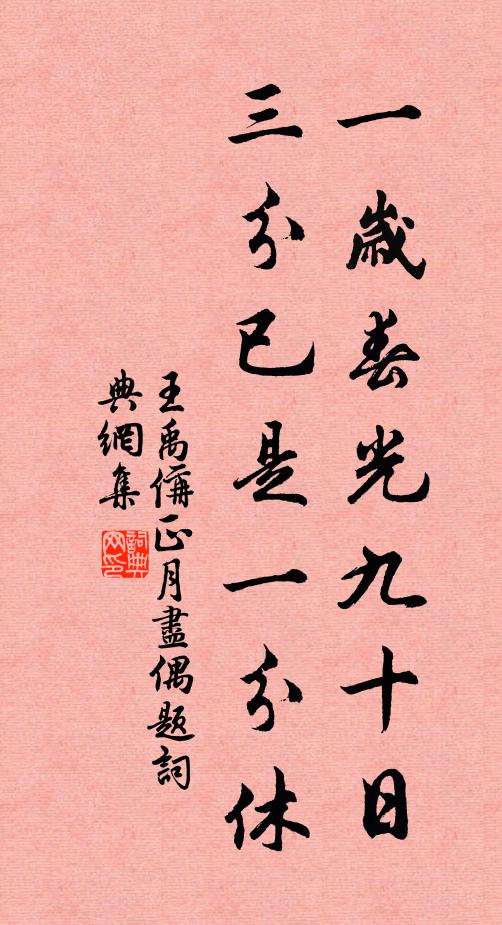 一歲春光九十日
三分已是一分休
王禹偁正月盡偶題詞
典網集
詞典
网印